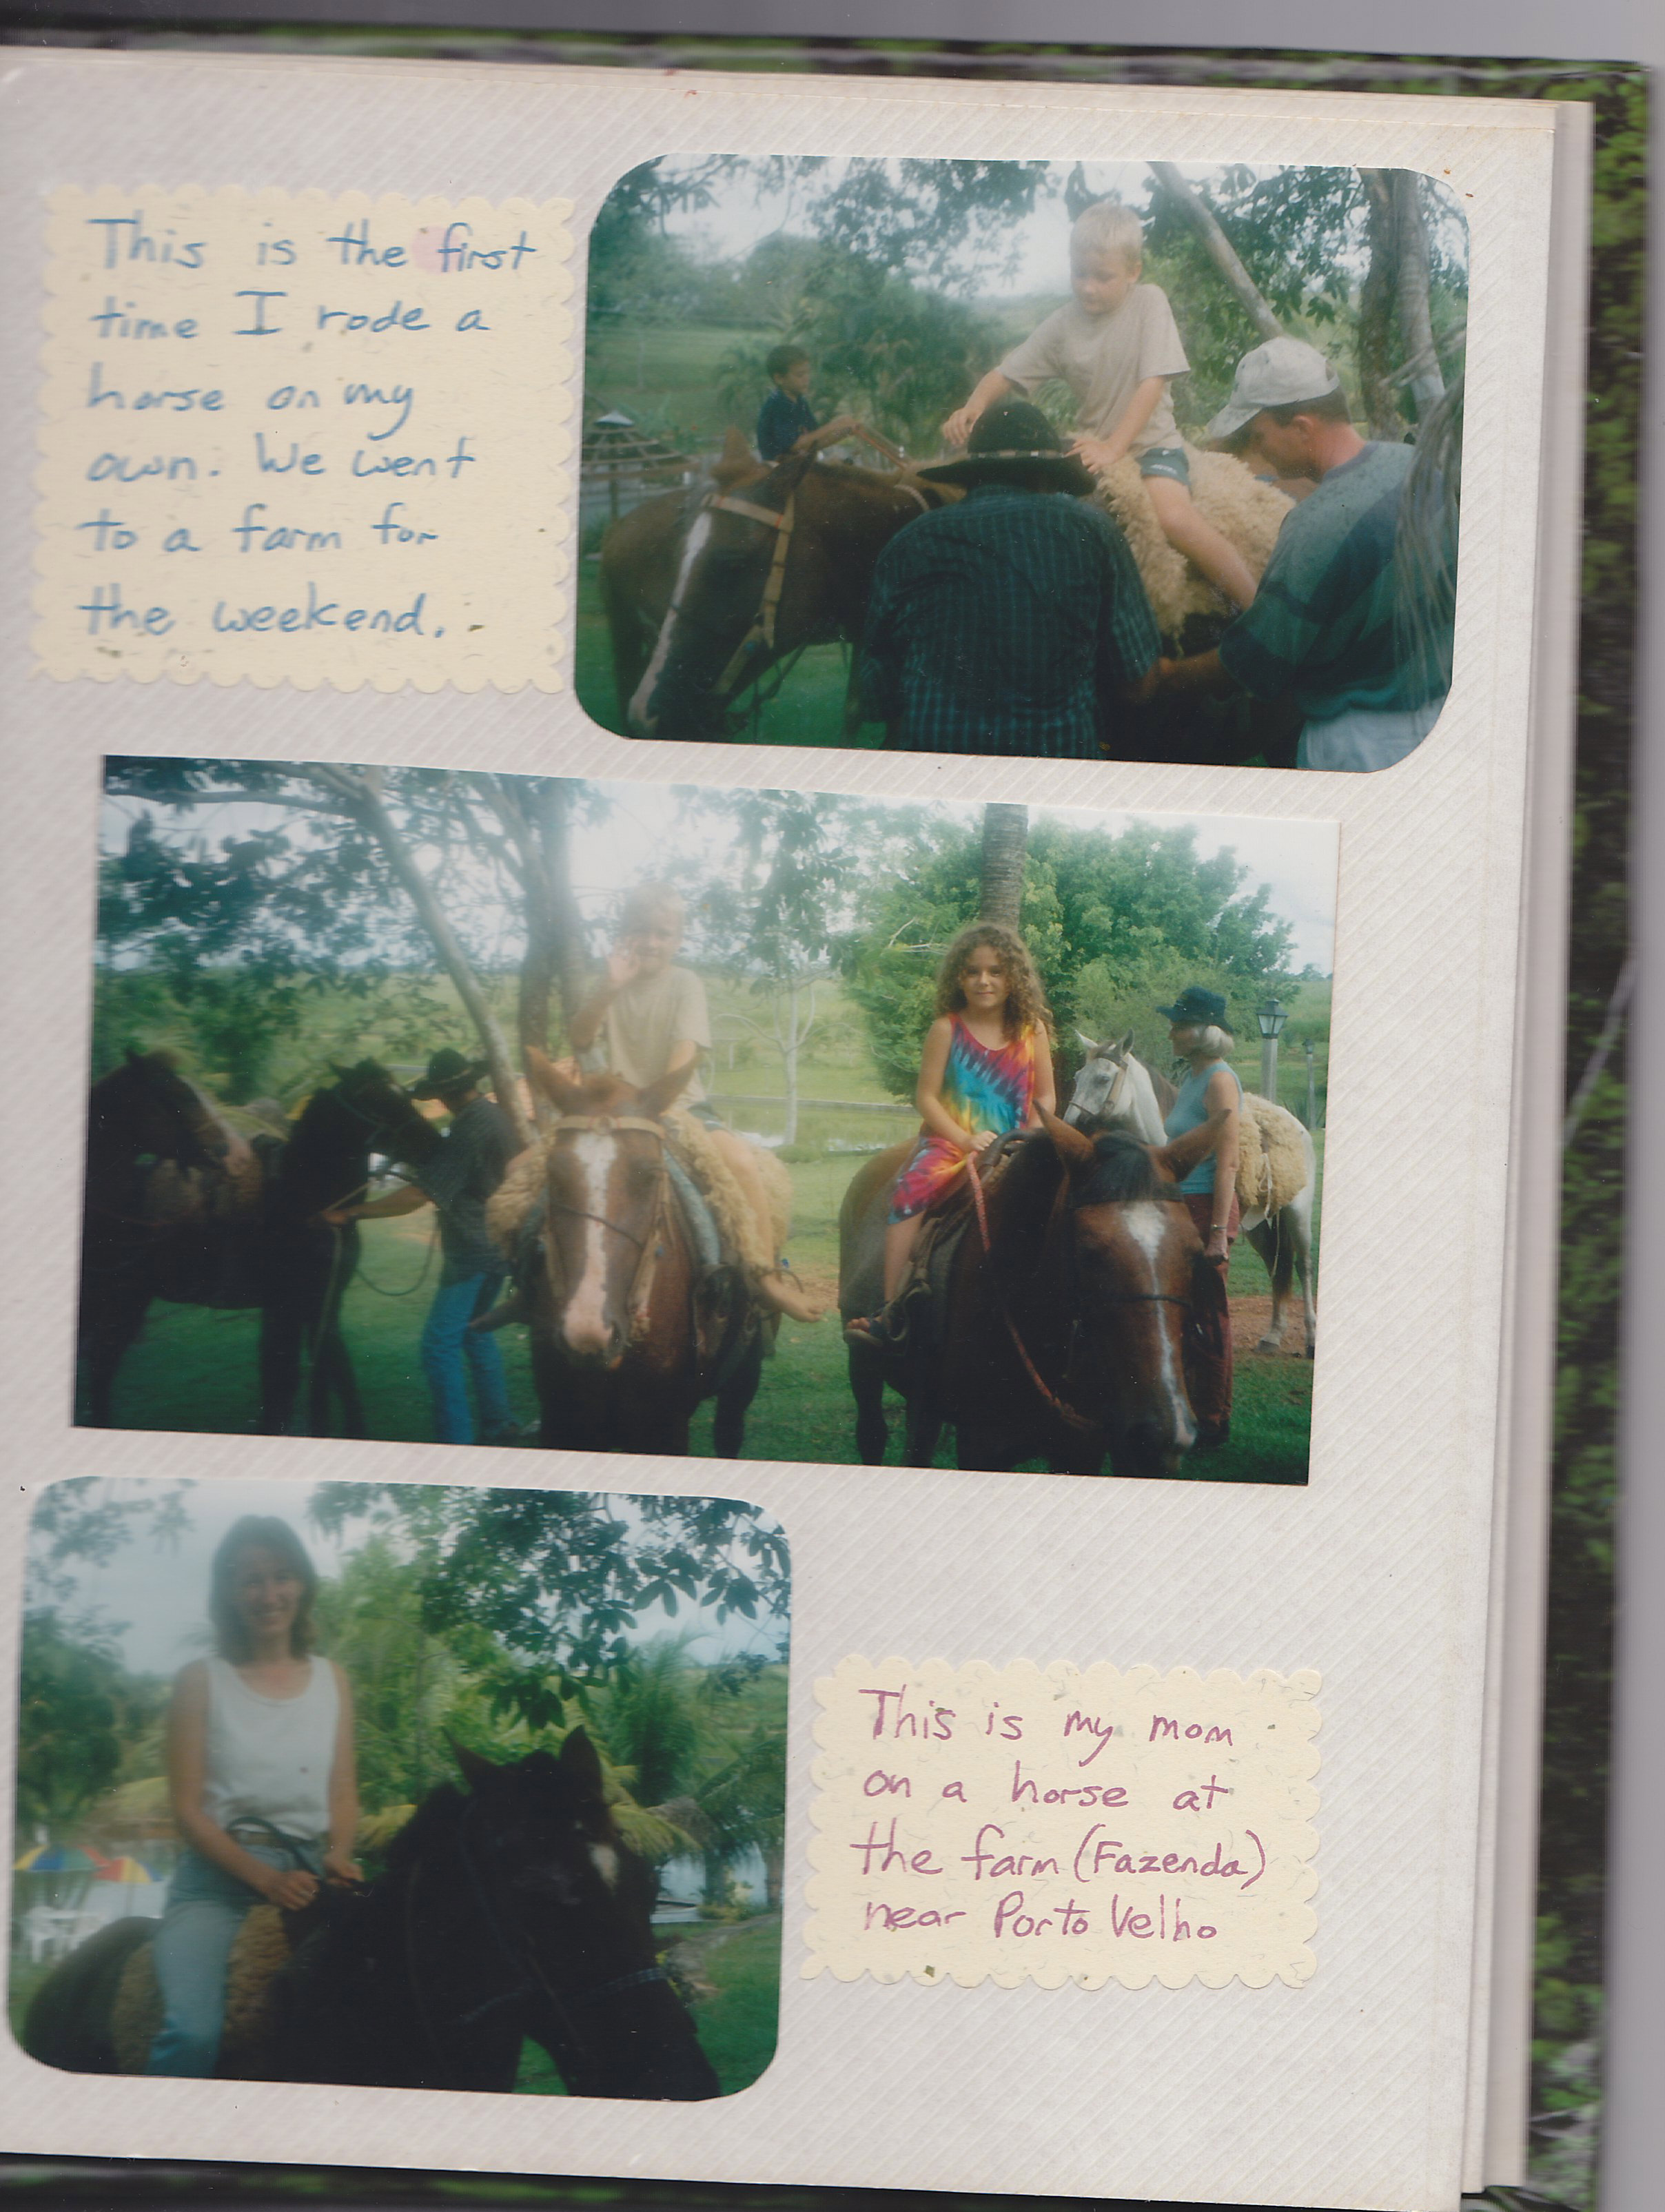 This is the first
time I rode a
horse on my
own. We went
to a farm for
the weekend.
This is my mom
on a horse at
the farm (Fazenda)
near Porto Velho